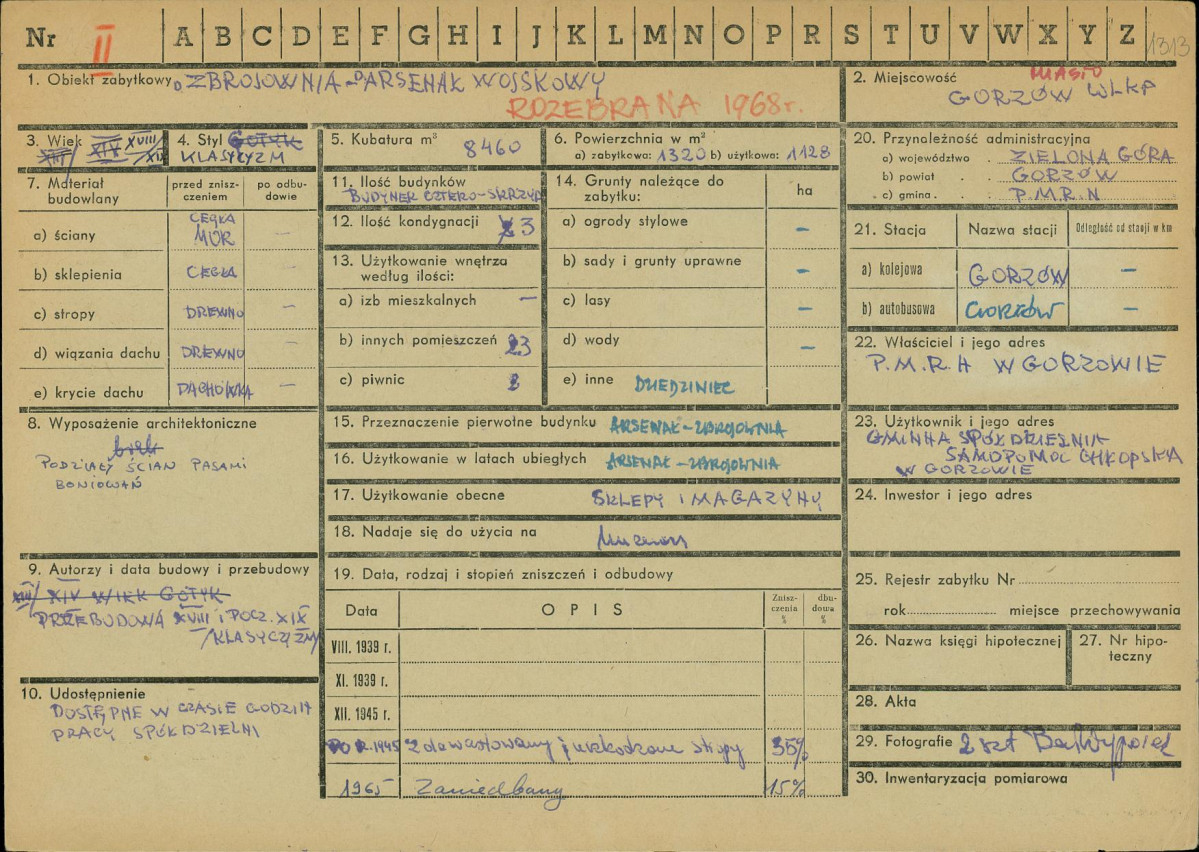 Nr II A B C D E F G H I J K L M N O P R S T U V W X Y Z 1313
1. Obiekt zabytkowy ZBROJOWNIA – ARSENAŁ WOJSKOWY
ROZEBRANA 1968 r.
2. Miejscowość MIASTO
GORZÓW WLKP
3. Wiek XIII/ XIV XVIII/XIX
4. Styl GOTYK
KLASYCYZM
5. Kubatura m³ 8460
6. Powierzchnia w m²
a) zabytkowa: 1320 b) użytkowa: 1128
7. Materiał budowlany
przed zniszczeniem
po odbudowie
a) ściany CEGŁA MUR –
b) sklepienia CEGŁA –
c) stropy DREWNO –
d) wiązania dachu DREWNO –
e) krycie dachu DACHÓWKA –
8. Wyposażenie architektoniczne
brak
PODZIAŁY ŚCIAN PASAMI
BONIOWAŃ
9. Autorzy i data budowy i przebudowy
XIII/ XIV WIEK GOTYK
PRZEBUDOWA XVIII i POCZ. XIX
/KLASYCYZM/
10. Udostępnienie
DOSTĘPNE W CZASIE GODZIN
PRACY SPÓŁDZIELNI
11. Ilość budynków
BUDYNEK CZTERO-SKRZYD
12. Ilość kondygnacji 3
13. Użytkowanie wnętrza
według ilości:
a) izb mieszkalnych –
b) innych pomieszczeń 23
c) piwnic 2
14. Grunty należące do
zabytku:
ha
a) ogrody stylowe –
b) sady i grunty uprawne –
c) lasy –
d) wody –
e) inne DZIEDZINIEC
15. Przeznaczenie pierwotne budynku ARSENAŁ-ZBROJOWNIA
16. Użytkowanie w latach ubiegłych ARSENAŁ-ZBROJOWNIA
17. Użytkowanie obecne SKLEPY i MAGAZYNY
18. Nadaje się do użycia na Muzeum
19. Data, rodzaj i stopień zniszczeń i odbudowy
Data OPIS Zniszczenia % dbudowa %
VIII. 1939 r.
XI. 1939 r.
XII. 1945 r.
PO R. 1945 Zdewastowany i uszkodzone stropy 35%
1965 Zaniedbany 15%
20. Przynależność administracyjna
a) województwo . ZIELONA GÓRA
b) powiat . . GORZÓW
c) gmina . . . P.M.R.N
21. Stacja Nazwa stacji Odległość od stacji w km
a) kolejowa GORZÓW –
b) autobusowa GORZÓW –
22. Właściciel i jego adres
P.M.R.N W GORZOWIE
23. Użytkownik i jego adres
GMINNA SPÓŁDZIELNIA
SAMOPOMOC CHŁOPSKA
W GORZOWIE
24. Inwestor i jego adres
25. Rejestr zabytku Nr
rok miejsce przechowywania
26. Nazwa księgi hipotecznej
27. Nr hipoteczny
28. Akta
29. Fotografie 2 szt
30. Inwentaryzacja pomiarowa